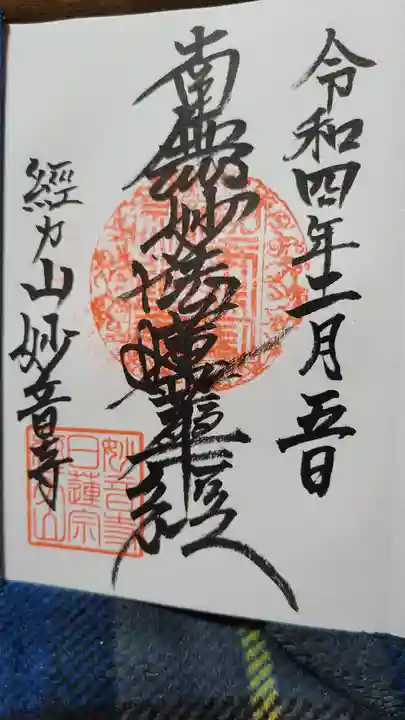 令和四年十二月五日
南無妙法蓮華経
經力山妙音寺
妙音寺
日蓮宗